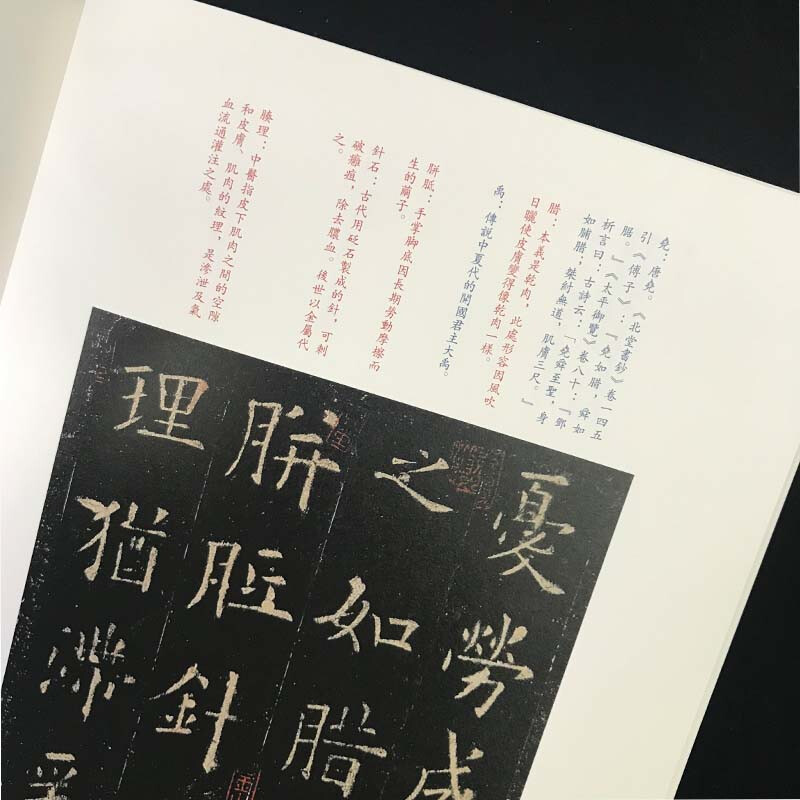 堯：唐堯。《北堂書鈔》卷一四五
引《傅子》：『堯如腊，舜如
腒。』《太平御覽》卷八十：『鄧
析言曰：古詩云：「堯舜至聖，身
如脯腊；桀紂無道，肌膚三尺。』
腊：本義是乾肉，此處形容因風吹
日曬使皮膚變得像乾肉一樣。
禹：傳說中夏代的開國君主大禹。
胼胝：手掌腳底因長期勞動摩擦而
生的繭子。
針石：古代用砭石製成的針，可刺
破癰疽，除去膿血。後世以金屬代
之。
腠理：中醫指皮下肌肉之間的空隙
和皮膚、肌肉的紋理，是滲泄及氣
血流通灌注之處。
憂勞成
之如腊
胼胝針
理猶滯